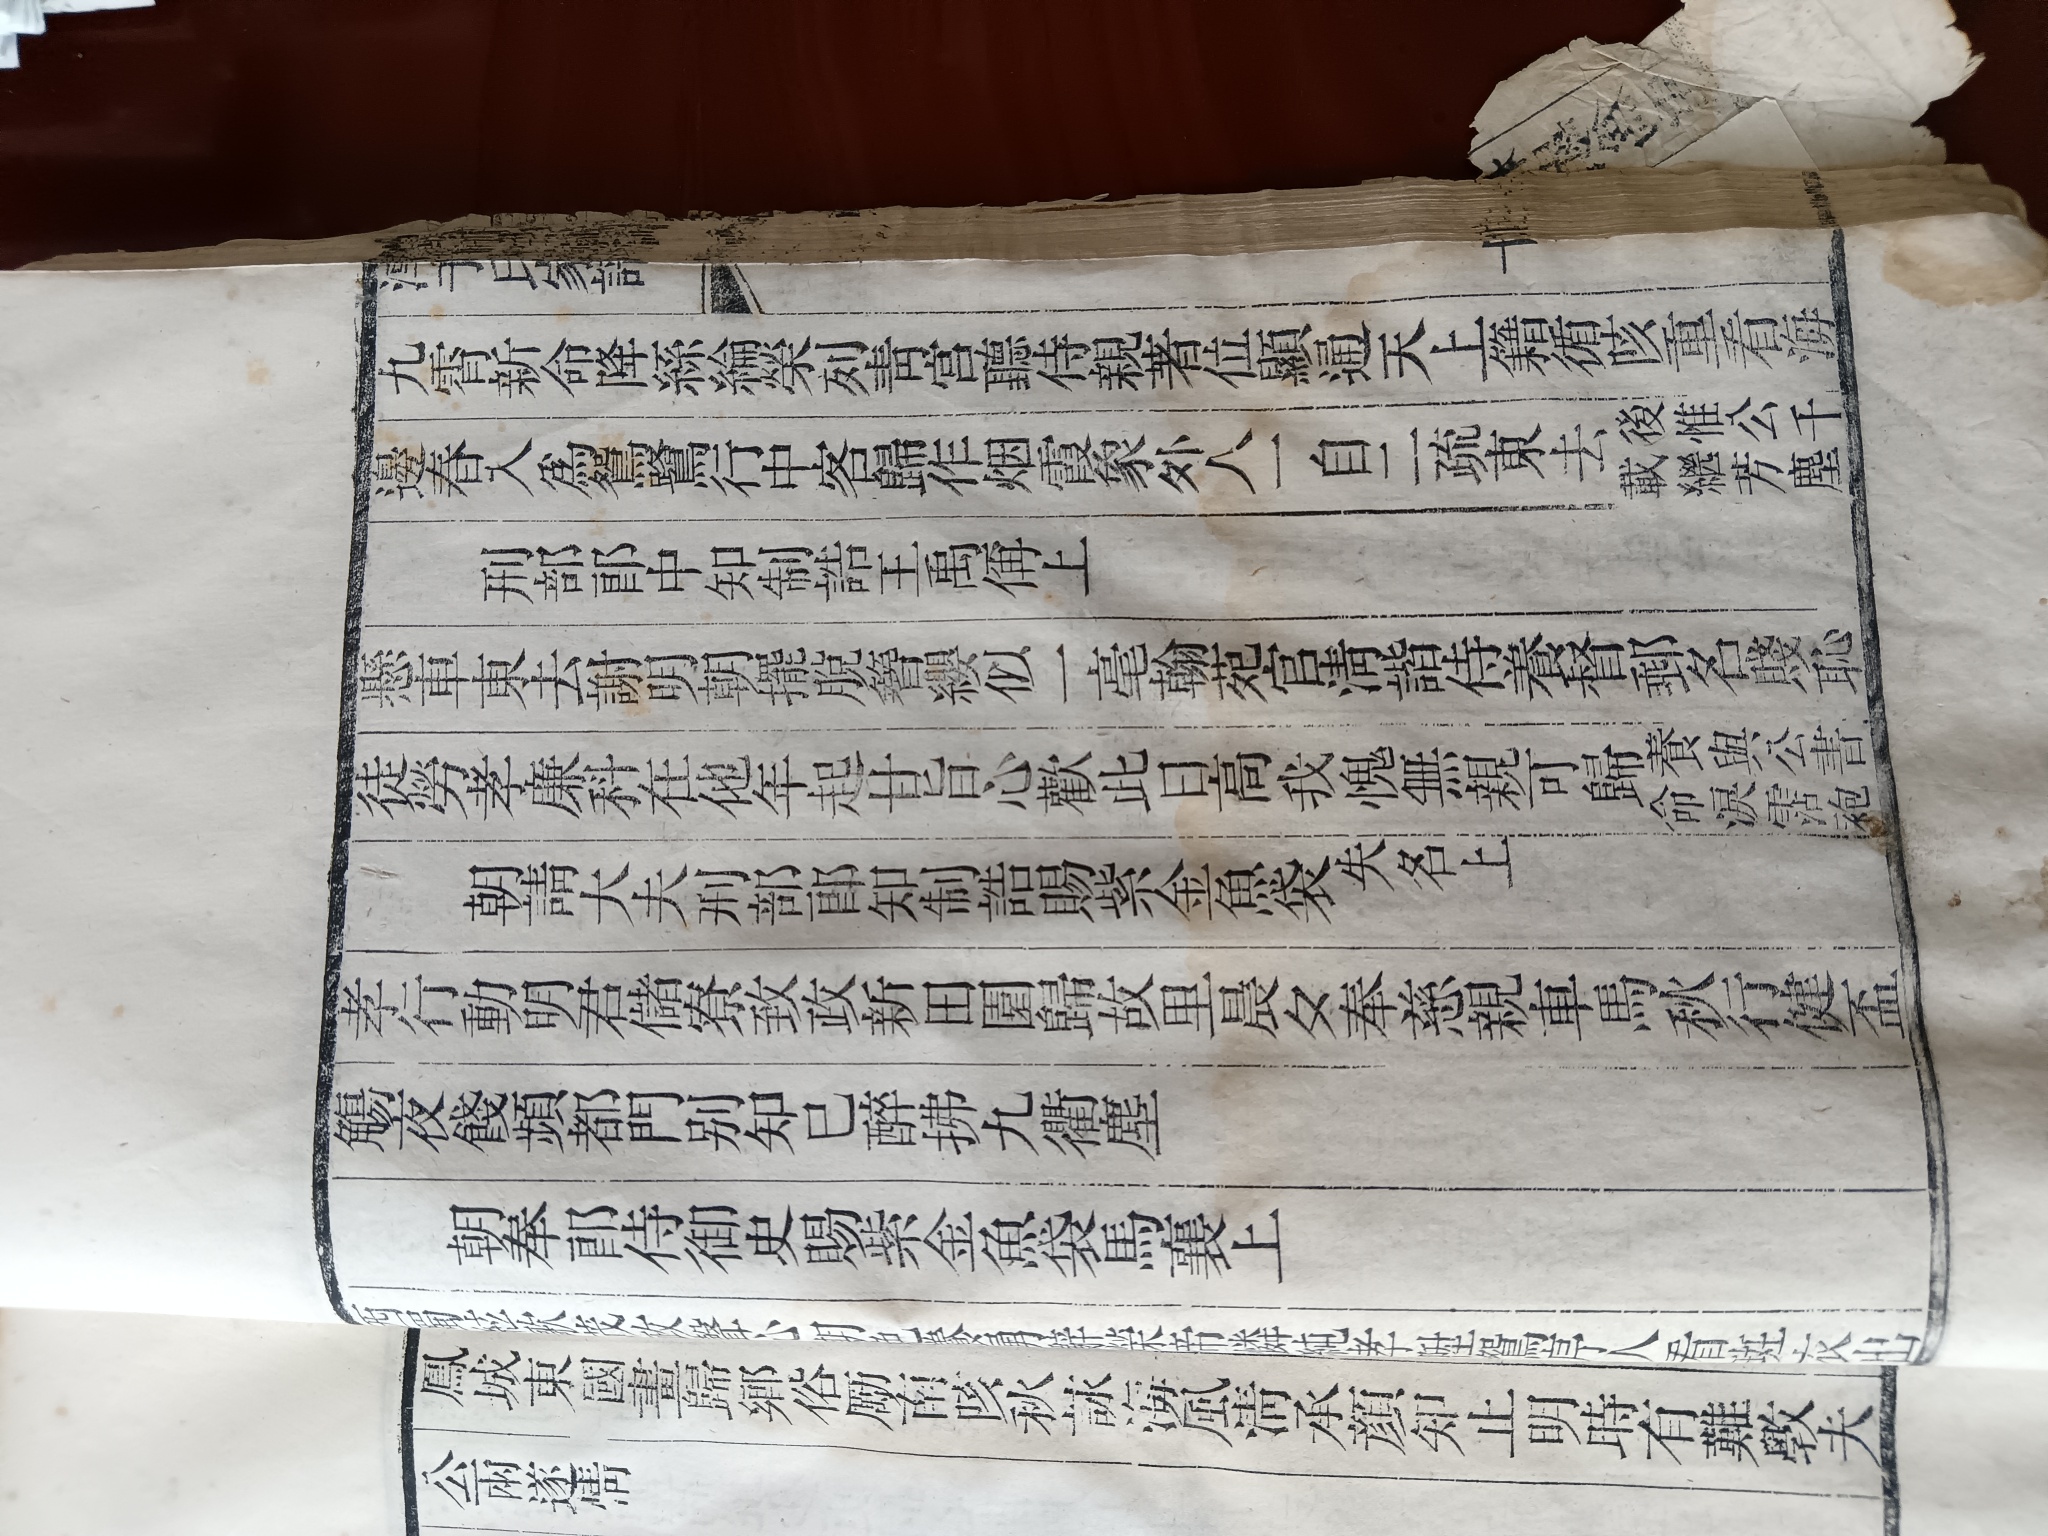 淳于氏家譜
九霄新命降絲綸榮列青宮聽侍親著位顯通天上籍循陔重看海
邊春人爲鴛鷺行中客歸作烟霞象外人一自二疏東去後惟公千
載繼芳塵
刑部郎中知制誥王禹偁上
懸車東去謝明朝擺脫簪纓似一毫翰苑官清諧侍養督郵名賤恥
徒勞孝廉科在他年起甘旨心歡此日高我愧無親可歸養與公書
命淚霑袍
朝請大夫刑部郎知制誥賜紫金魚袋失名上
孝行動明君儲寮致政新田園歸故里晨夕奉慈親車馬秋行健盃
觴夜餞頻都門別知已醉拂九衢塵
朝奉郎侍御史賜紫金魚袋馬襄上
鳳城東國畫歸鄉俗勵南陔秋詠海風清承顏知止明時有難敎夫
公兩遂情